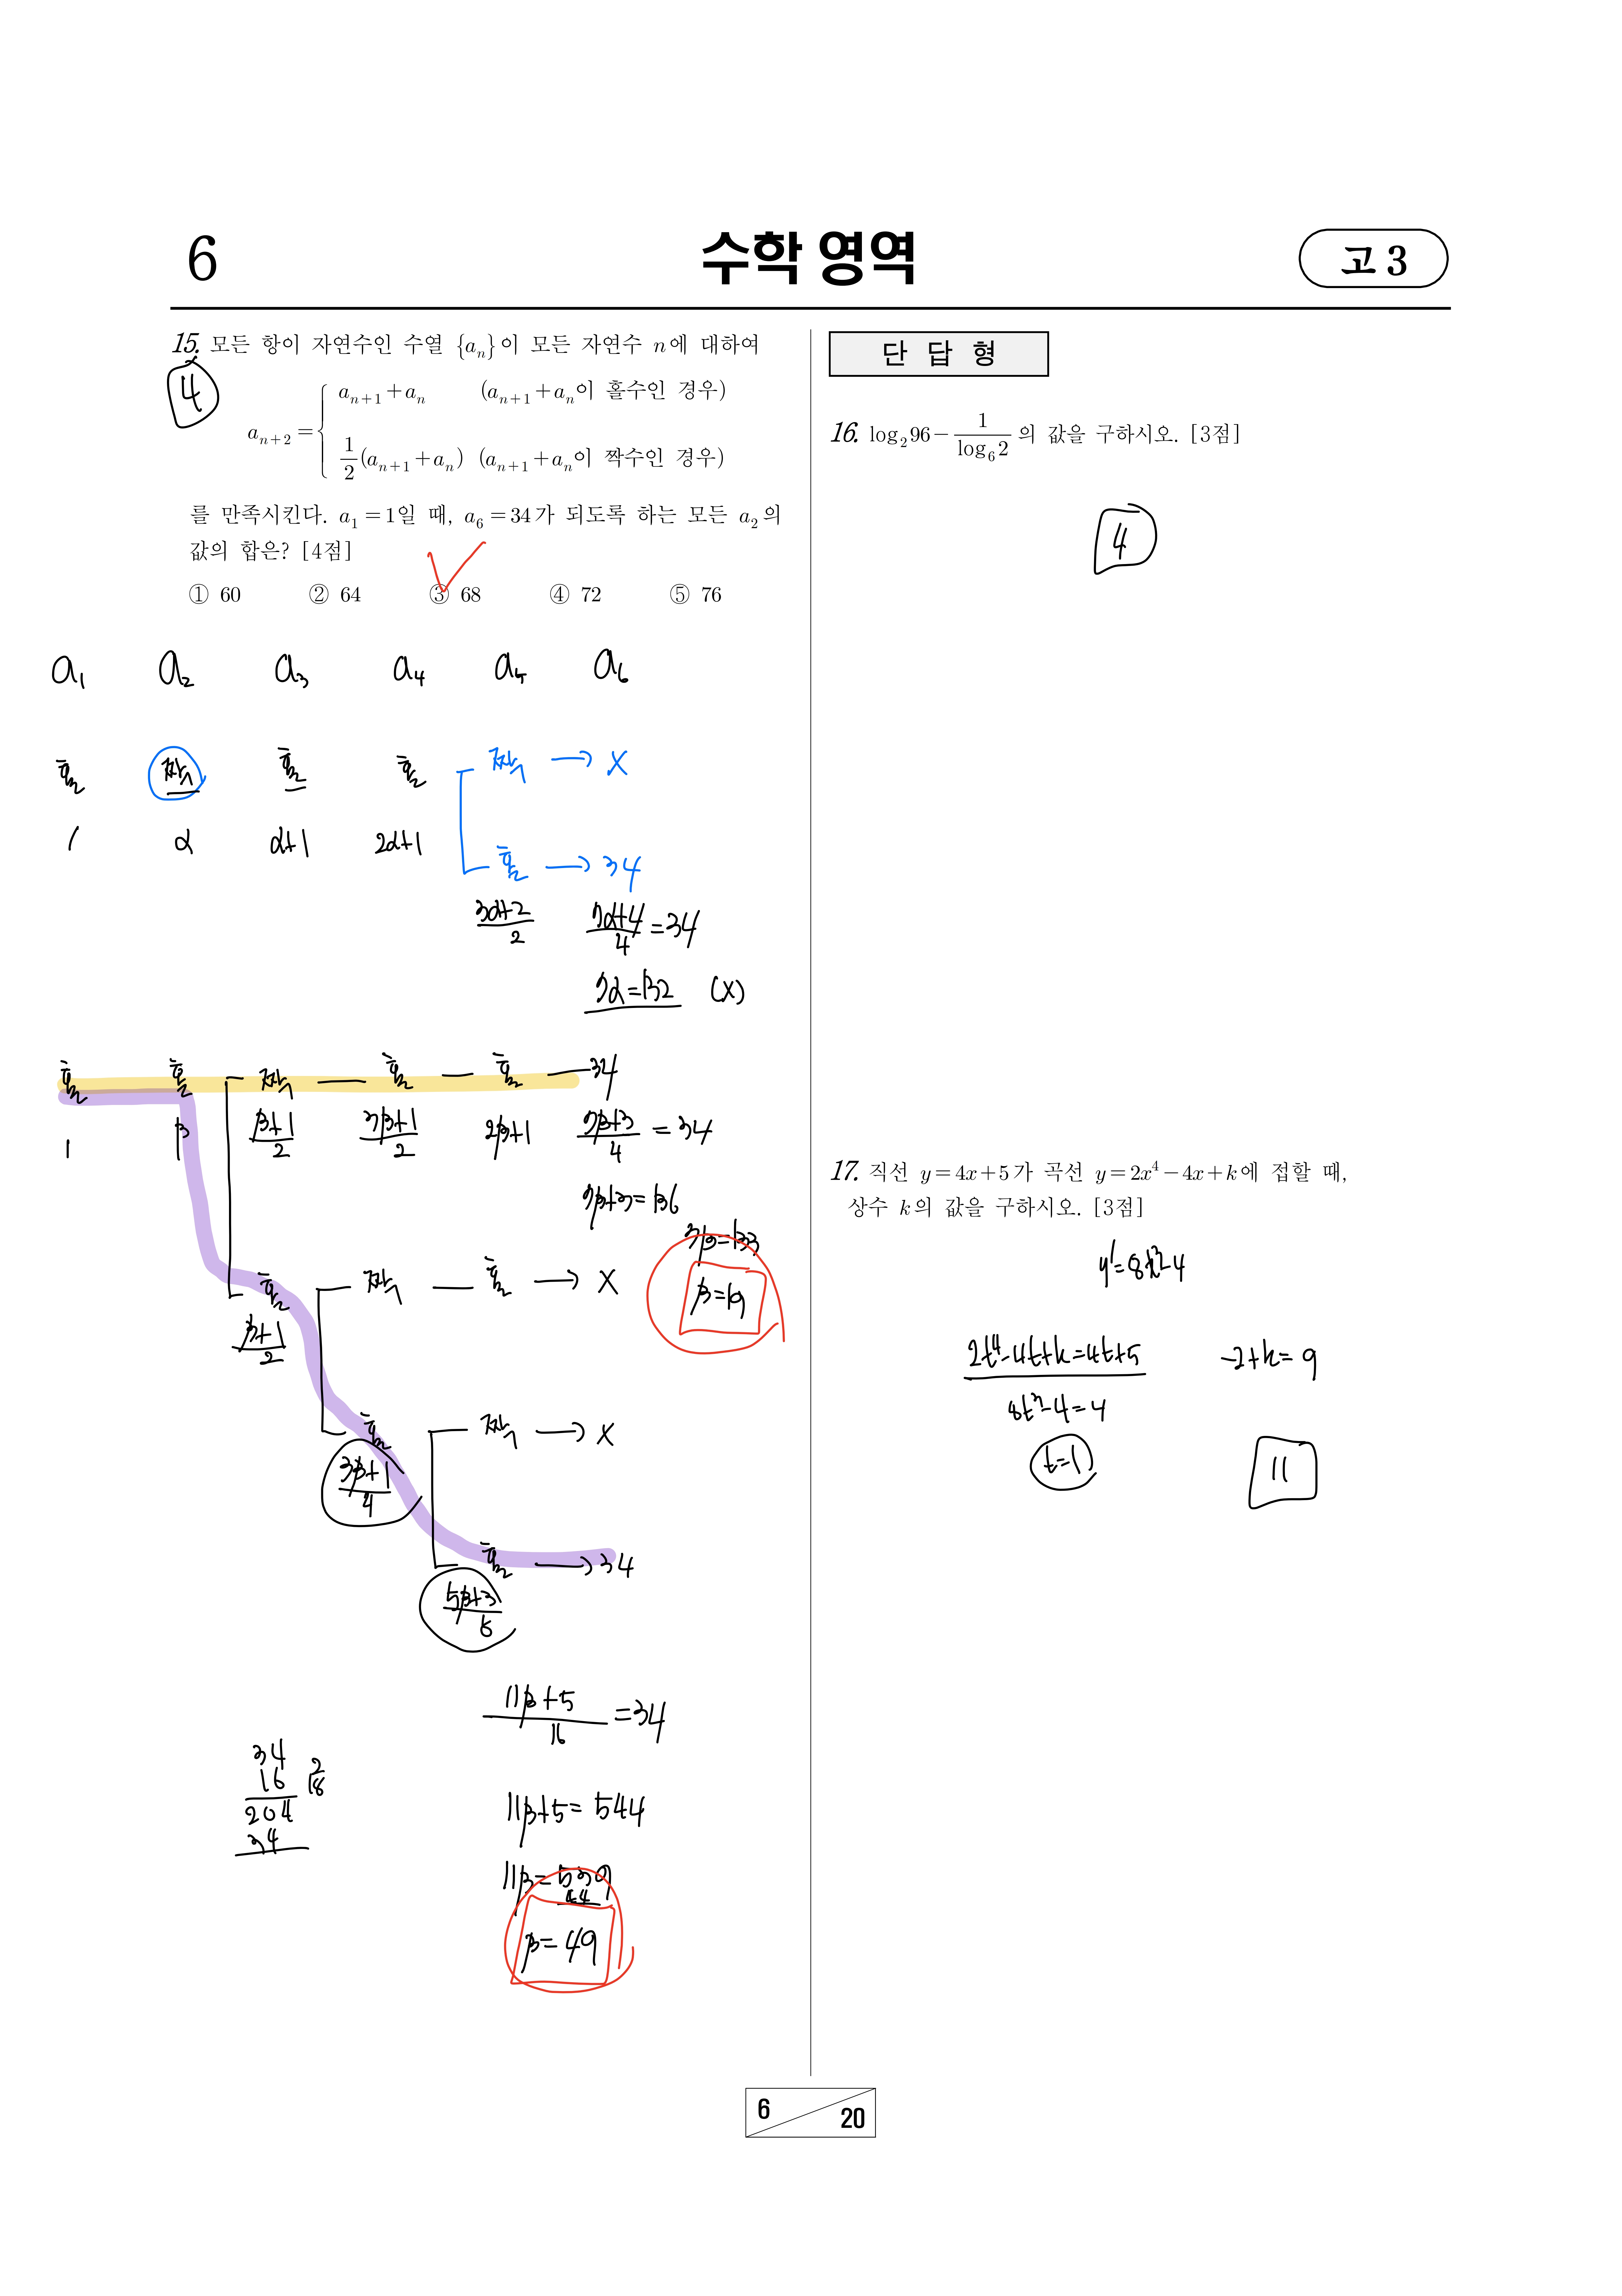 6
수학 영역
고 3
15. 모든 항이 자연수인 수열 {aₙ}이 모든 자연수 n에 대하여
4
aₙ₊₂ = { aₙ₊₁+aₙ (aₙ₊₁+aₙ이 홀수인 경우)
1/2(aₙ₊₁+aₙ) (aₙ₊₁+aₙ이 짝수인 경우)
를 만족시킨다. a₁=1일 때, a₆=34가 되도록 하는 모든 a₂의
값의 합은? [4점]
① 60 ② 64 ③ 68 ④ 72 ⑤ 76
a₁ a₂ a₃ a₄ a₅ a₆
홀 짝 홀 홀 짝 → X
1 α α+1 2α+1
홀 → 34
(3α+2)/2 (7α+4)/4 =34
7α=132 (X)
홀 홀 짝 — 홀 — 홀 — 34
1 β (β+1)/2 (3β+1)/2 2β+1 (7β+3)/4 = 34
7β+3=136
7β=133
β=19
홀 짝 — 홀 → X
(β+1)/2
홀 짝 → X
(3β+1)/4
홀 → 34
(5β+3)/8
(11β+5)/16 =34
34
16
204
34
11β+5= 544
11β=539
44
β= 49
단 답 형
16. log₂96 − 1/log₆2 의 값을 구하시오. [3점]
4
17. 직선 y=4x+5가 곡선 y=2x⁴−4x+k에 접할 때,
상수 k의 값을 구하시오. [3점]
y'=8x³-4
2t⁴-4t+k=4t+5 -2+k= 9
8t³-4=4
t=1 11
6 20